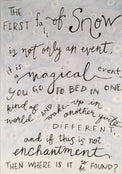 THE FIRST fall of SNOW
is not only an event,
it is a magical event.
YOU GO TO BED IN ONE
kind of world and wake up in another quite
DIFFERENT,
and if this is not
enchantment
THEN WHERE IS IT to be FOUND?